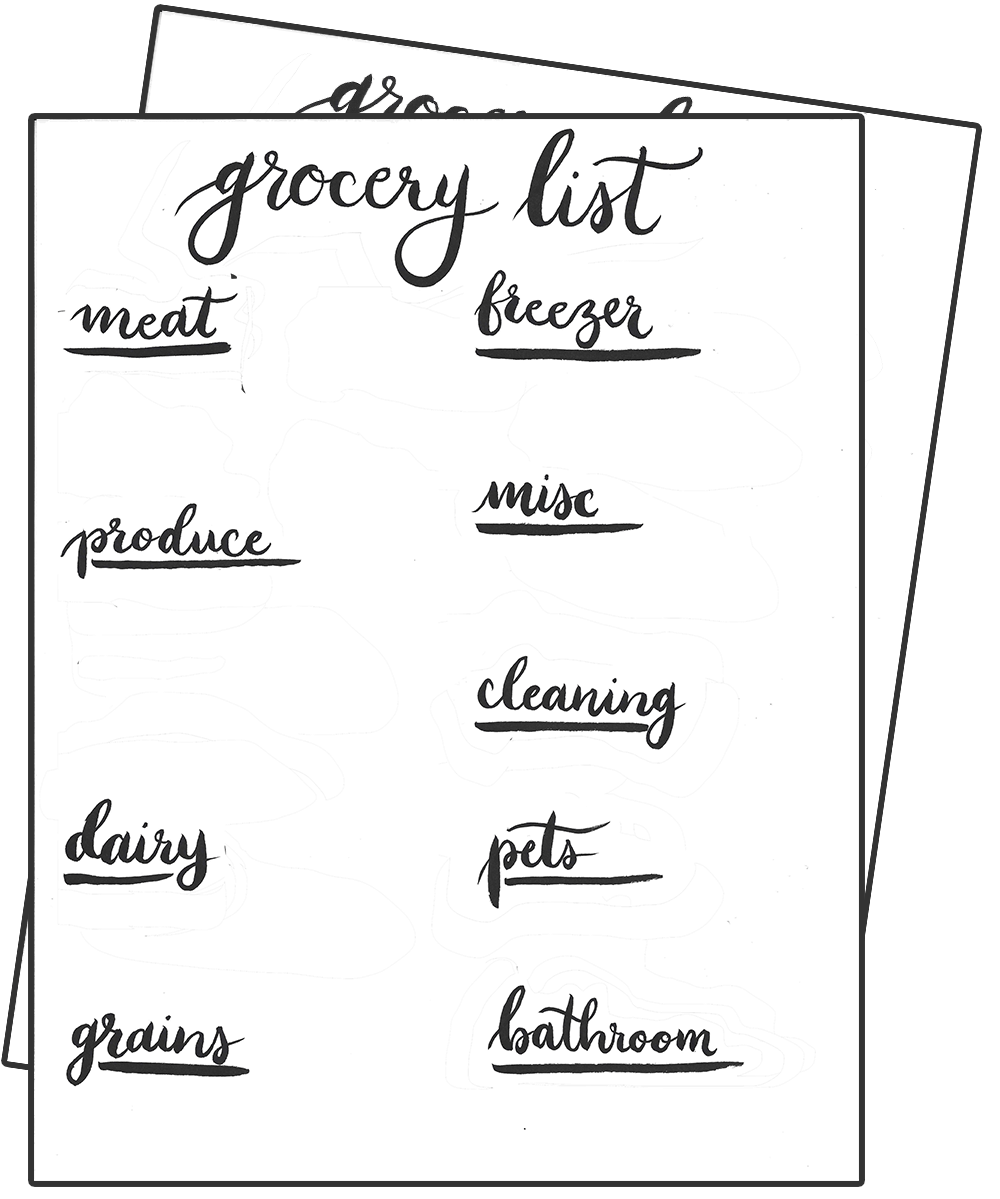 grocery list
meat
produce
dairy
grains
freezer
misc
cleaning
pets
bathroom